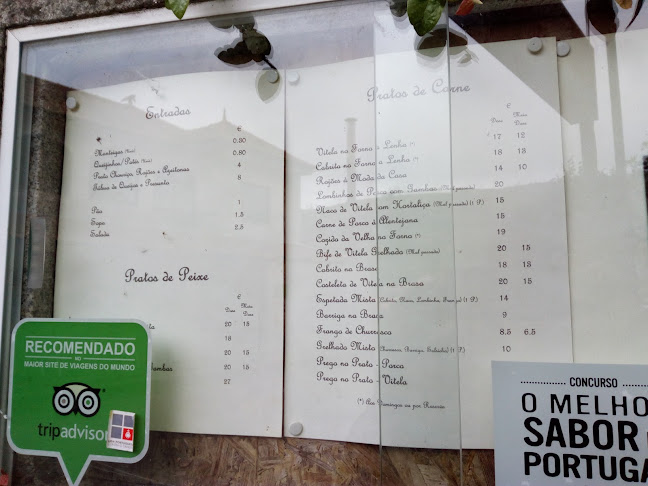 Entradas
€
Manteigas (Uni)
0.50
Queijinhos/Patés (Uni)
0.80
Prato Chouriço Rojões e Azeitonas
4
Tábua de Queijos e Presunto
8
Pão
1
Sopa
1.5
Salada
2.5
Pratos de Peixe
€
Dose
Meia Dose
20 15
18
20 15
20 15
27
Pratos de Carne
€
Dose
Meia Dose
Vitela no Forno a Lenha (*)
17 12
Cabrito no Forno a Lenha (*)
18 13
Rojões á Moda da Casa
14 10
Lombinhos de Porco com Gambas (Mal passado)
20
Naco de Vitela com Hortaliça (Mal passado) (1 P.)
15
Carne de Porco á Alentejana
15
Cozido da Velha no Forno (*)
19
Bife de Vitela Grelhado (Mal passado)
20 15
Cabrito na Brasa
18 13
Costeleta de Vitela na Brasa
20 15
Espetada Mista
14
Barriga na Brasa
9
Frango de Churrasco
8.5 6.5
Grelhado Misto (1 P.)
10
Prego no Prato - Porco
Prego no Prato - Vitela
(*) Aos Domingos ou por Reserva
RECOMENDADO
NO
MAIOR SITE DE VIAGENS DO MUNDO
tripadvisor
CONCURSO
O MELHO
SABOR
PORTUGA